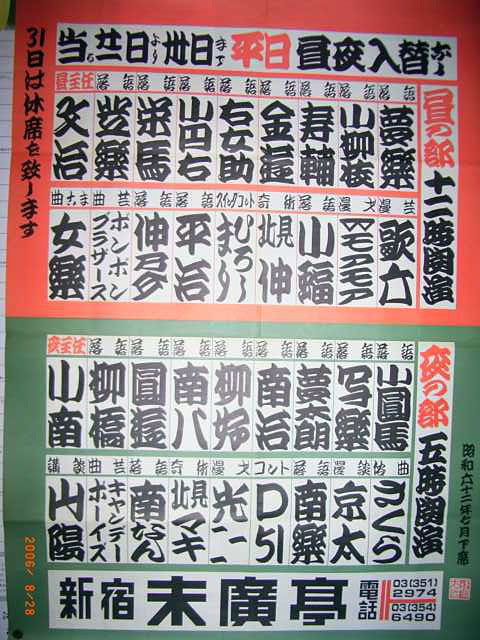 当る廿一日より卅日まで平日昼夜入替なし
31日は休席を致します
昼の部 十二時開演
落語 夢楽
落語 小柳枝
落語 寿輔
落語 金遊
落語 右女助
落語 小円右
落語 栄馬
落語
昼主任 文治
漫芸 歌六
漫才 Wモアモア
落語 小福
奇術 北見伸
コント ひろし まり
落語 平治
落語
曲芸 ボンボンブラザース
曲ごま 女楽
夜の部 五時開演
昭和六十二年七月下席
落語 小圓馬
落語 写楽
落語 夢太朗
落語 南治
落語 柳好
落語 南八
落語 圓遊
落語 柳橋
夜主任 小南
俗曲 さくら
漫談 京太
落語 南楽
コント D51
漫才 光一 光二
奇術 北見マキ
落語 南なん
曲芸 キャンデーボーイズ
講談 山陽
新宿 末廣亭 電話 03(351)2974 03(354)6490
2006/8/28